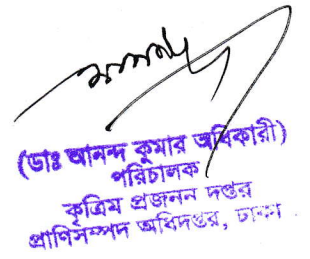 (ডাঃ আনন্দ কুমার অধিকারী)
পরিচালক
কৃত্রিম প্রজনন দপ্তর
প্রাণিসম্পদ অধিদপ্তর, ঢাকা